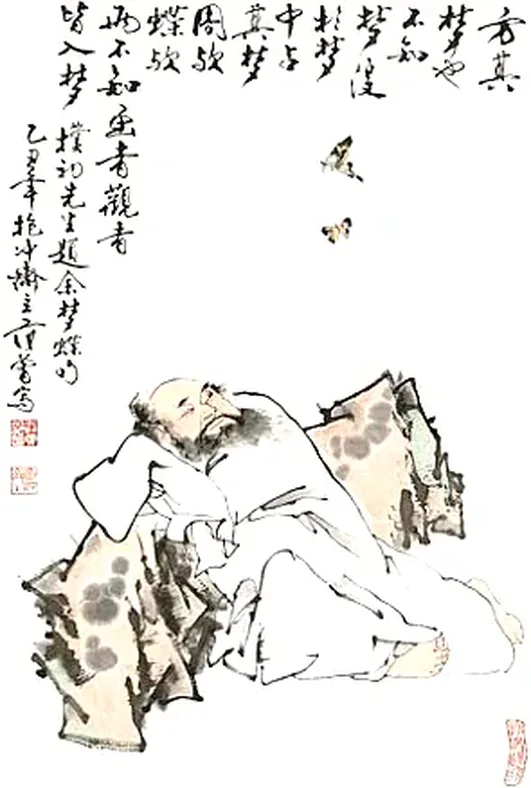 方其
梦也
不知
梦復
於梦
中占
其梦
周欤
蝶欤
兩不知画者觀者
皆入梦 樸初先生題余梦蝶句
乙丑年抱冲齋主范曾写